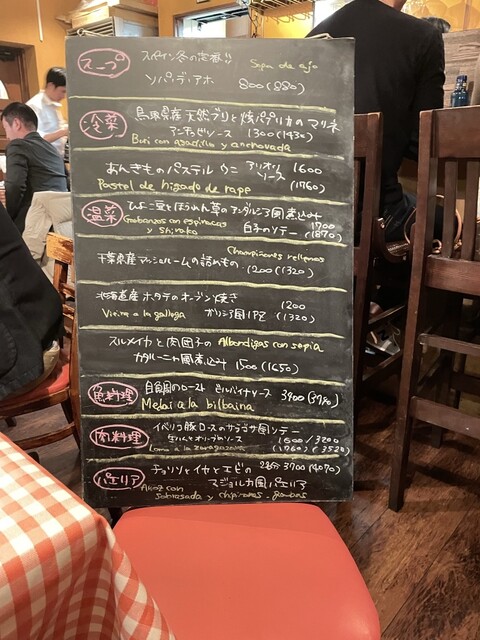 スープ
スペイン冬の定番!!
Sopa de ajo
ソパ・デ・アホ 800(880)
冷菜
鳥取県産 天然ブリと焼パプリカのマリネ
アンチョビソース 1300(1430)
Buri con asadillo y anchovada
あんきものパステル ウニ アリオリソース 1600
Pastel de higado de rape (1760)
温菜
ひよこ豆とほうれん草のアンダルシア風煮込み
Garbanzos con espinacas 1700
y shirako 白子のソテー (1870)
Champiñones rellenos
千葉県産マッシュルームの詰めもの 1200(1320)
北海道産 ホタテのオーブン焼き 1200
Vieira a la gallega ガリシア風 (1320)
スルメイカと肉団子の Albondigas con sepia
カタルーニャ風煮込み 1500(1650)
魚料理
ロースト ビルバイナソース
a la bilbaina
肉料理
イベリコ豚ロースのサラゴサ風ソテー
生ハムとオリーブのソース 1600/3200
Lomo a la zaragozana (1760)(3520)
パエリア
チョリソとイカとエビの 3700(4070)
Arroz con マジョルカ風パエリア
sobrasada y chipirones, gambas